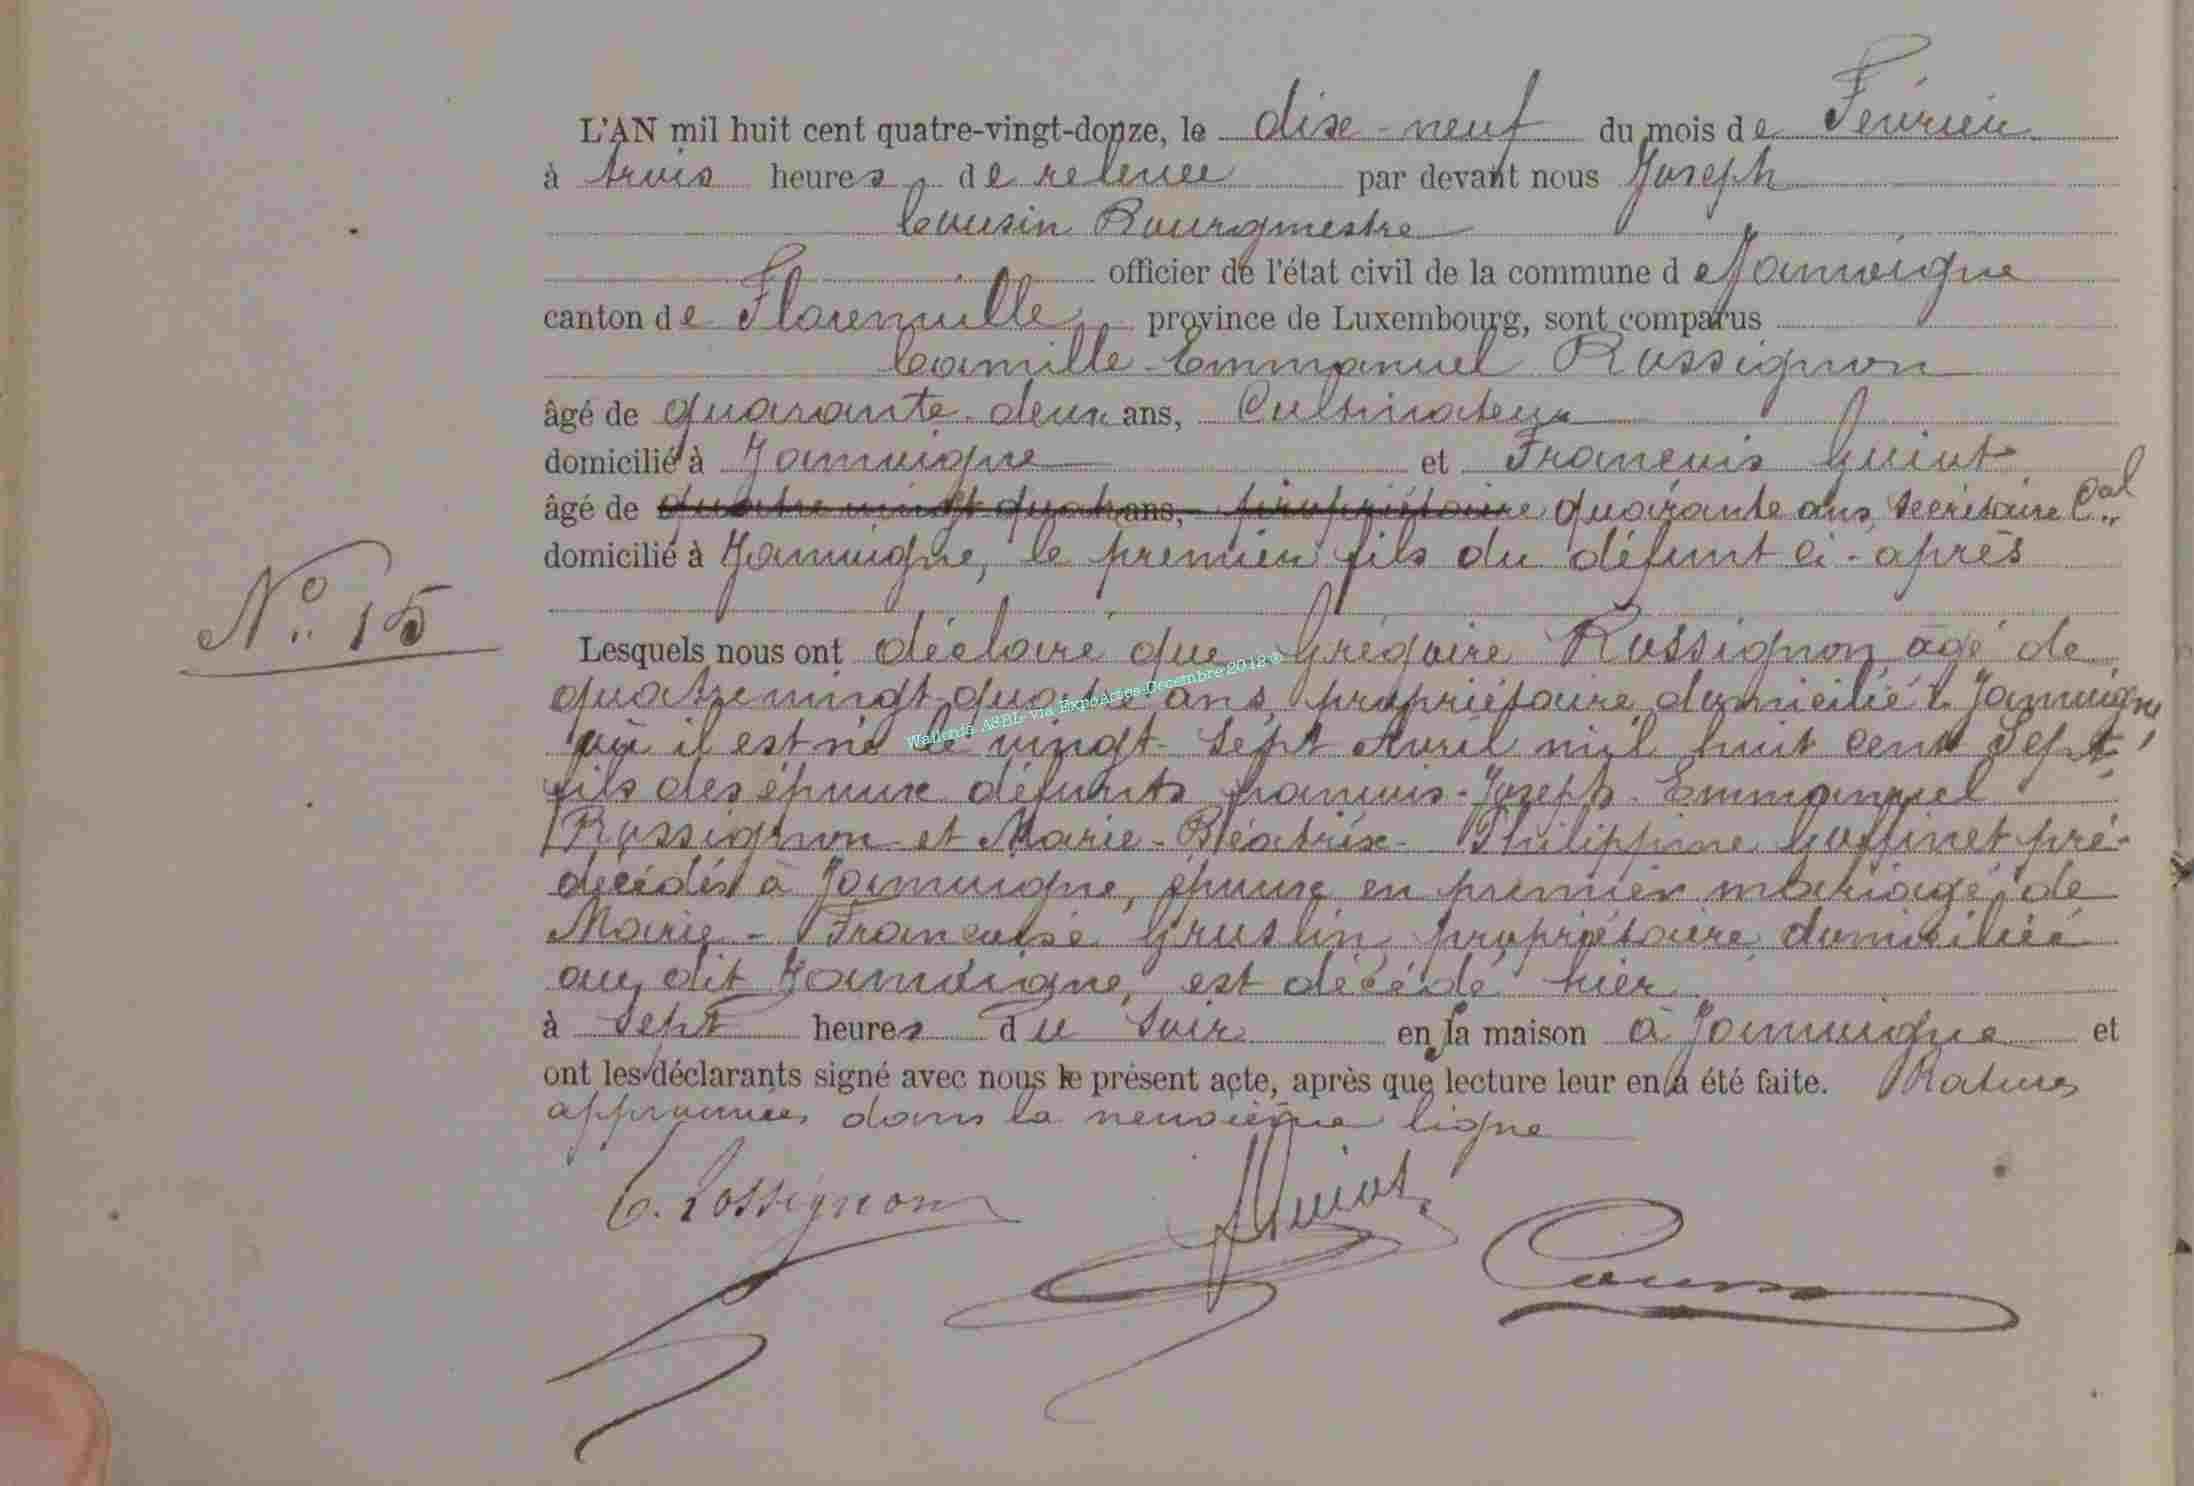 L'AN mil huit cent quatre-vingt-donze, le dixe-neuf du mois de Février
à trois heures de relevée par devant nous Joseph
Cousin Bourgmestre
officier de l'état civil de la commune de Jamoigne
canton de Florenville province de Luxembourg, sont comparus
Camille-Emmanuel Rossignon
âgé de quarante-deux ans, Cultivateur
domicilié à Jamoigne et François Guiot
âgé de quatre vingt quatre ans, propriétaire quarante ans, secrétaire Cal
domicilié à Jamoigne, le premier fils du défunt ci-après
Nº 15
Lesquels nous ont déclaré que Grégoire Rossignon, âgé de
quatrevingt-quatre ans, propriétaire, domicilié à Jamoigne
où il est né le vingt-sept Avril mil huit cent sept,
fils des époux défunts françois-Joseph-Emmanuel
Rossignon et Marie-Béatrix-Philippine Goffinet pré-
décédés à Jamoigne, époux en premier mariage de
Marie-Françoise Groslin, propriétaire, domiciliée
au dit Jamoigne, est décédé hier
à sept heures du soir en sa maison à Jamoigne et
ont les déclarants signé avec nous le présent acte, après que lecture leur en a été faite. Ratures
approuvées dans la neuvième ligne
C. Rossignon Guiot Cousin
Wallonia ASBL via ExpoActes-Decembre 2012 ©